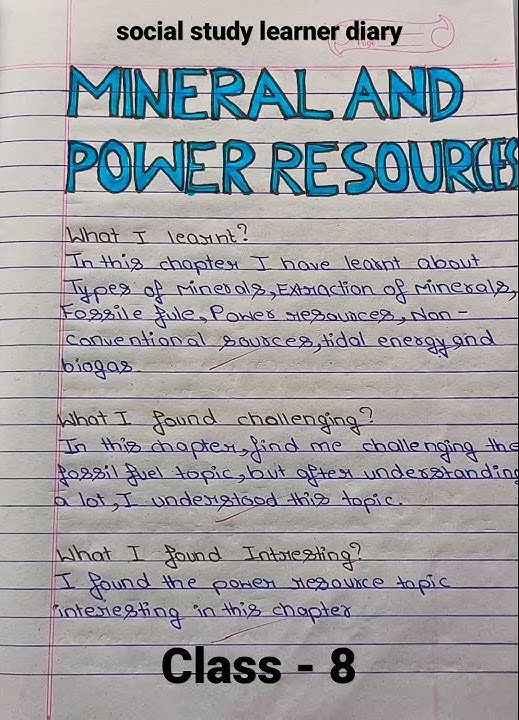 social study learner diary
Page
MINERAL AND
POWER RESOURCES
What I learnt?
In this chapter I have learnt about
Types of Minerals, Extraction of Minerals,
Fossile fule, Power resources, Non-
Conventional sources, tidal energy and
biogas.
What I found challenging?
In this chapter, find me challenging the
fossil fuel topic, but after understanding
a lot, I understood this topic.
What I found Intresting?
I found the power resource topic
interesting in this chapter
Class - 8